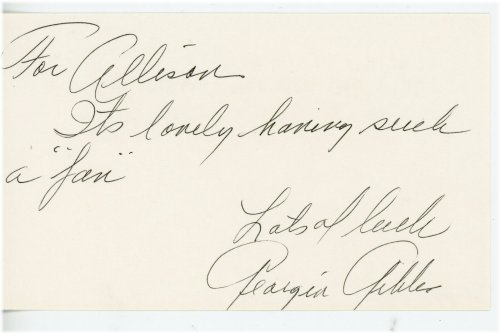 For Allison
Its lovely having such
a "fan"
Lots of luck
Georgia Gibbs